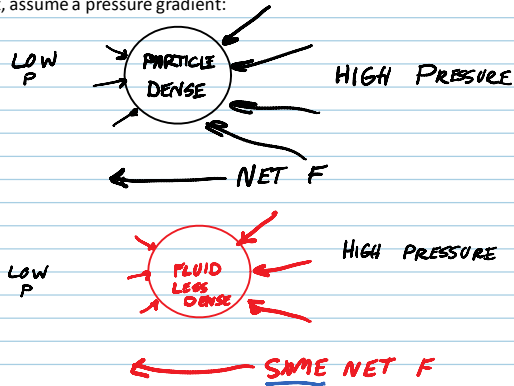 , assume a pressure gradient:
LOW
P
PARTICLE
DENSE
HIGH PRESSURE
NET F
LOW
P
FLUID
LESS
DENSE
HIGH PRESSURE
SAME NET F